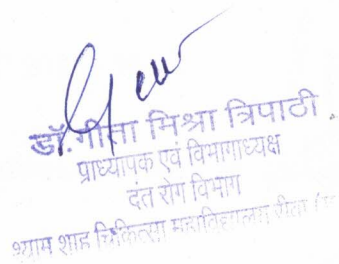 डॉ. गीता मिश्रा त्रिपाठी
प्राध्यापक एवं विभागाध्यक्ष
दंत रोग विभाग
श्याम शाह चिकित्सा महाविद्यालय रीवा